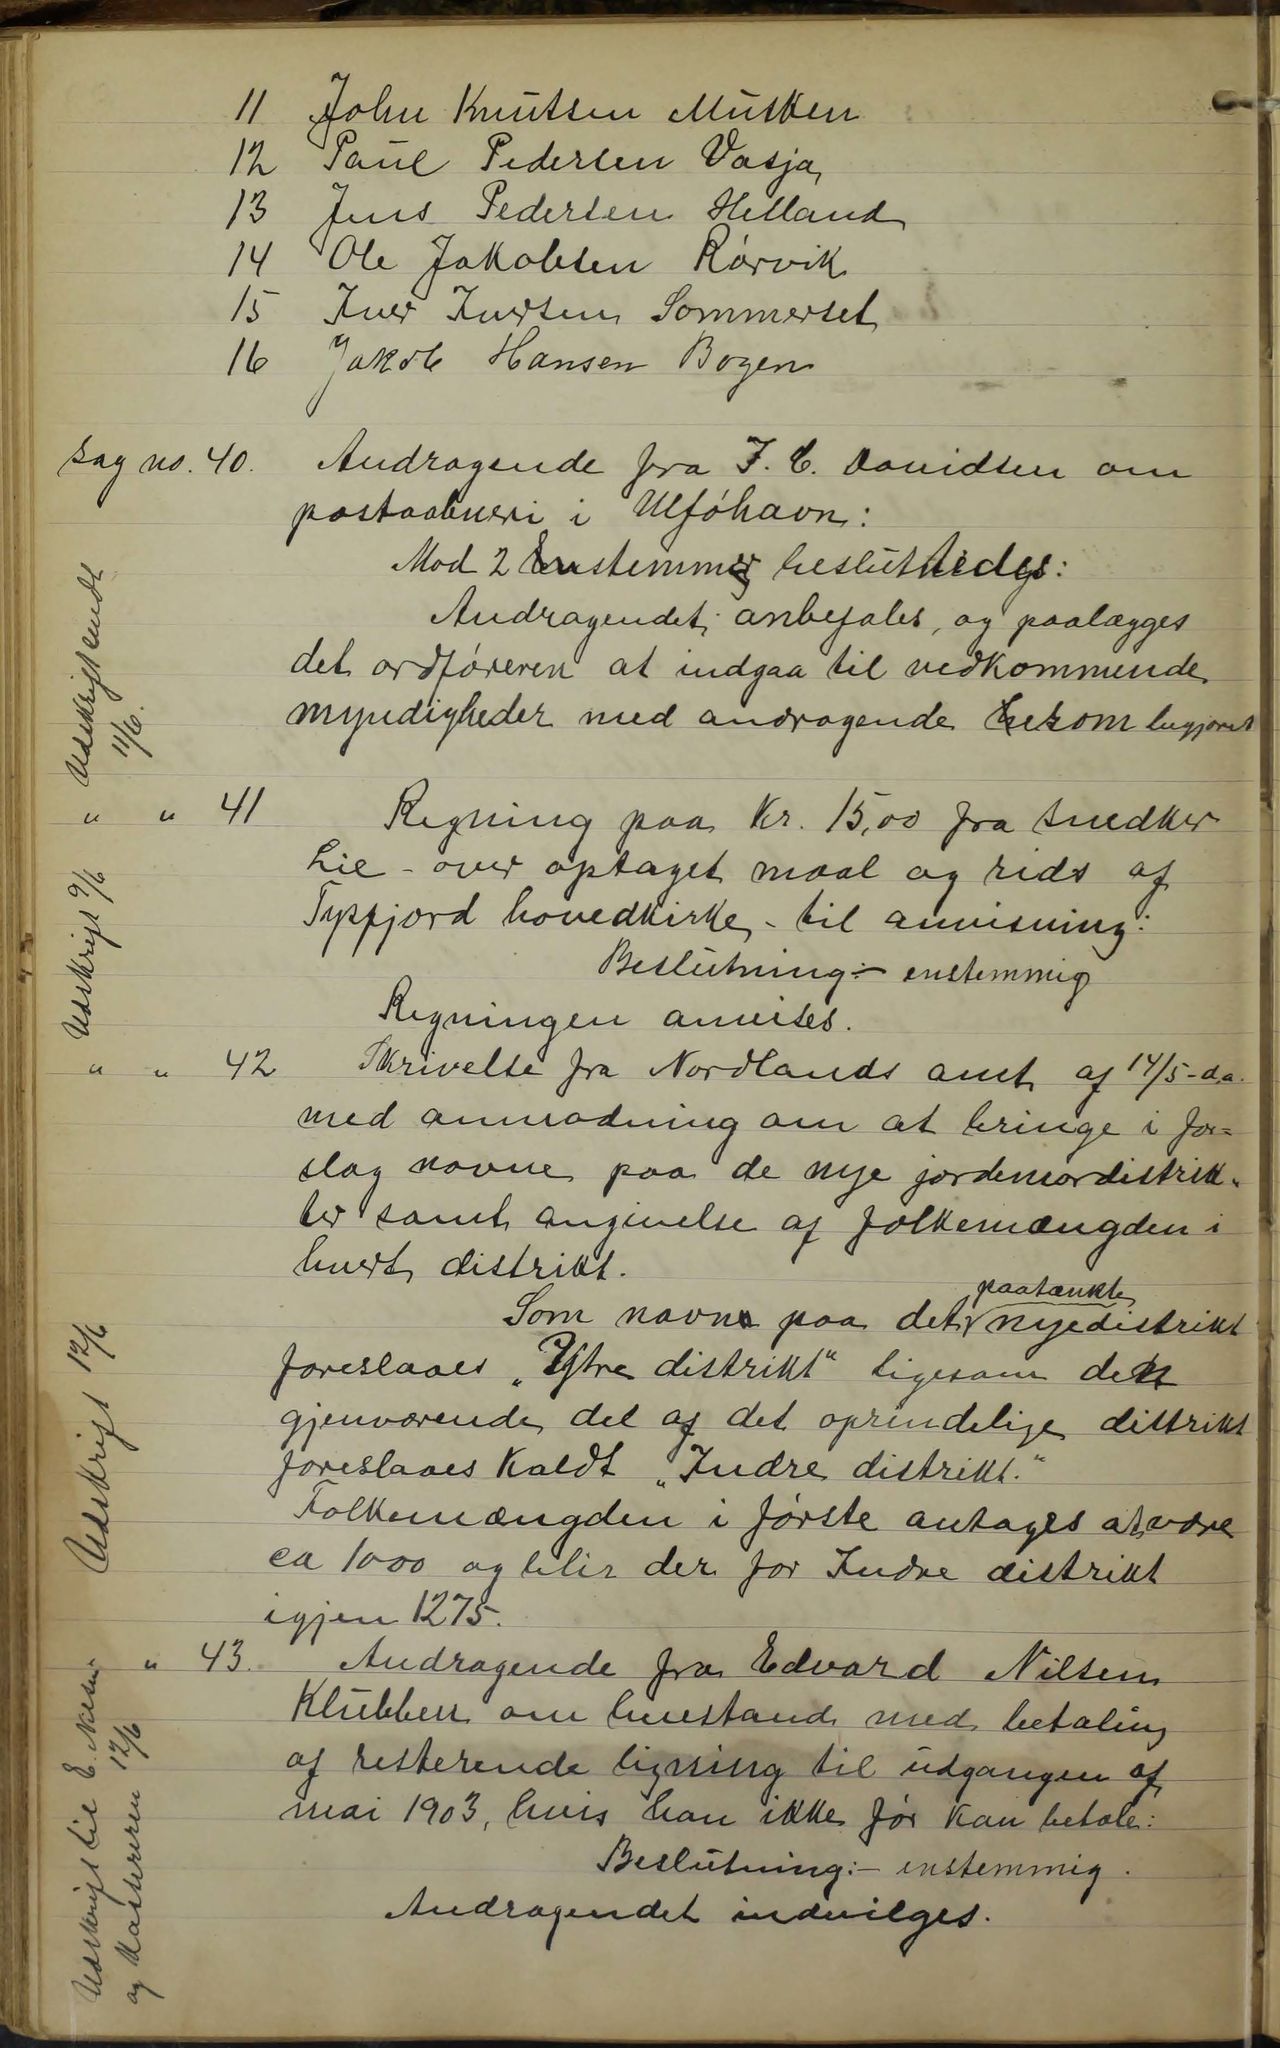 11 John Knutsen Musken
12 Paul Pedersen Vasja
13 Jens Pedersen Helland
14 Ole Jakobsen Rørvik
15 Iver Iversen Sommerset
16 Jakob Hansen Bogen
Sag no. 40. Andragende fra J. C. Davidsen om
postaabneri i Ulføhavn:
Mod 2 stemmer besluttedes:
Andragendet anbefales, og paalægges
det ordføreren at indgaa til vedkommende
myndigheder med andragende herom begjæret
Udskrift sendt
11/6.
" " 41 Regning paa Kr. 15,00 fra snedker
Lie - over optaget maal og rids af
Tysfjord hovedkirke - til anvisning:
Beslutning:- enstemmig
Regningen anvises.
Udskrift 9/6
" " 42 Skrivelse fra Nordlands amt af 14/5 - d.a.
med anmodning om at bringe i for=
slag navne paa de nye jordemordistrik-
ter samt angivelse af folkemængden i
hvert distrikt.
Som navn paa det paatænkte nye distrikt
foreslaaes "Ytre distrikt" ligesom den
gjenværende del af det oprindelige distrikt
foreslaaes kaldt "Indre distrikt."
Folkemængden i første antages at være
ca 1000 og blir der for Indre distrikt
igjen 1275.
Udskrift 12/6
" 43. Andragende fra Edvard Nilsen
Klubben om henstand med betaling
af resterende ligning til udgangen af
mai 1903, hvis han ikke før kan betale:
Beslutning:- enstemmig.
Andragendet indvilges.
Udskrift til E. Nilsen
og Kasseren 12/6